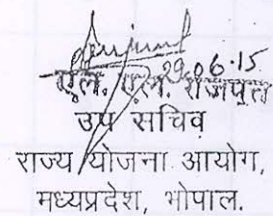 29.06.15
एल. एल. राजपूत
उप सचिव
राज्य योजना आयोग,
मध्यप्रदेश, भोपाल.